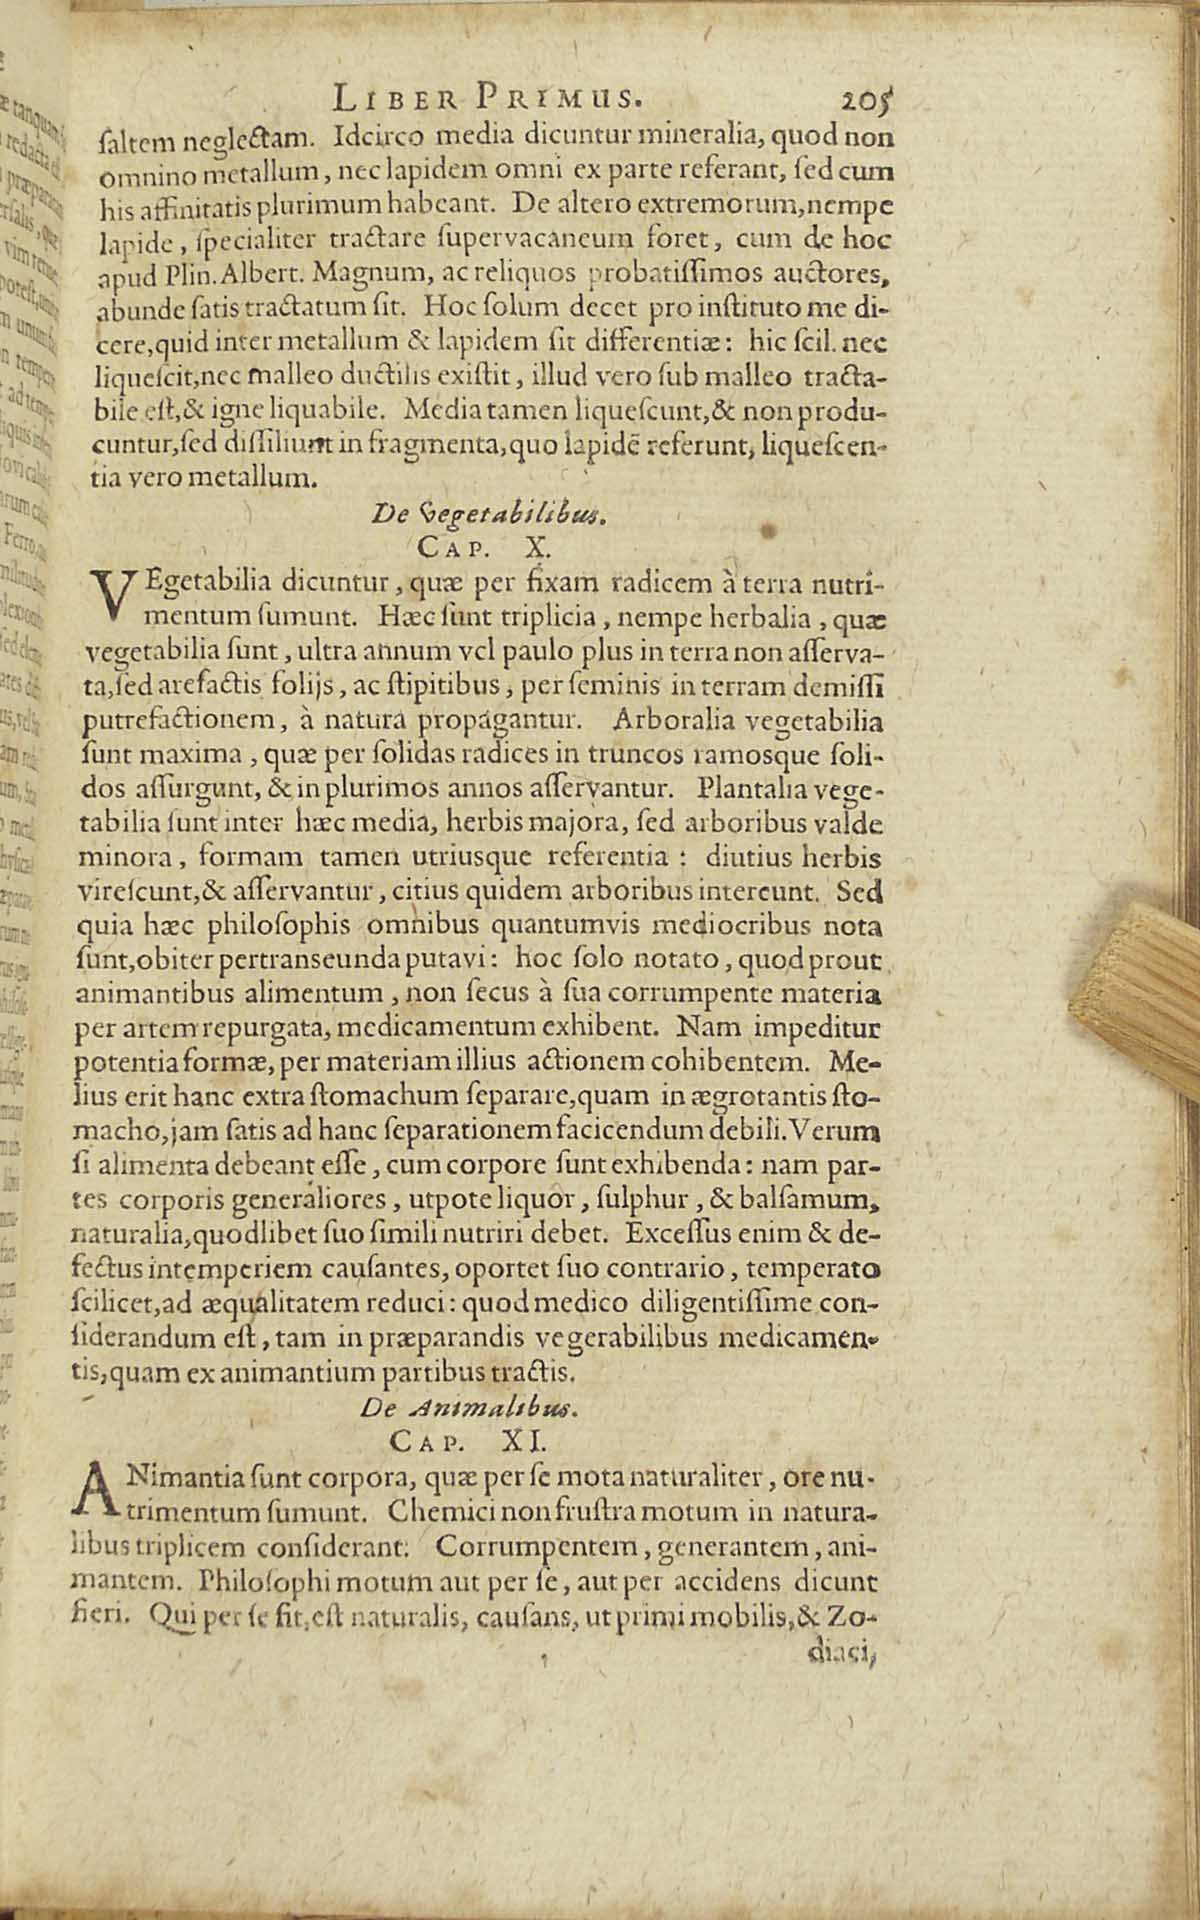 LIBER PRIMUS. 205
ſaltem neglectam. Idcirco media dicuntur mineralia, quod non
omnino metallum, nec lapidem omni ex parte referant, ſed cum
his affinitatis plurimum habeant. De altero extremorum, nempe
lapide, ſpecialiter tractare ſupervacaneum foret, cum de hoc
apud Plin. Albert. Magnum, ac reliquos probatiſſimos auctores,
abunde ſatis tractatum ſit. Hoc ſolum decet pro inſtituto me di-
cere, quid inter metallum & lapidem ſit differentiæ: hic ſcil. nec
liqueſcit, nec malleo ductilis exiſtit, illud vero ſub malleo tracta-
bile eſt, & igne liquabile. Media tamen liqueſcunt, & non produ-
cuntur, ſed diſſiliunt in fragmenta, quo lapidē referunt, liqueſcen-
tia vero metallum.
De Vegetabilibus.
CAP. X.
VEgetabilia dicuntur, quæ per fixam radicem à terra nutri-
mentum ſumunt. Hæc ſunt triplicia, nempe herbalia, quæ
vegetabilia ſunt, ultra annum vel paulo plus in terra non aſſerva-
ta, ſed arefactis folijs, ac ſtipitibus, per ſeminis in terram demiſſi
putrefactionem, à natura propagantur. Arboralia vegetabilia
ſunt maxima, quæ per ſolidas radices in truncos ramosque ſoli-
dos aſſurgunt, & in plurimos annos aſſervantur. Plantalia vege-
tabilia ſunt inter hæc media, herbis majora, ſed arboribus valde
minora, formam tamen utriusque referentia: diutius herbis
vireſcunt, & aſſervantur, citius quidem arboribus intereunt. Sed
quia hæc philoſophis omnibus quantumvis mediocribus nota
ſunt, obiter pertranseunda putavi: hoc ſolo notato, quod prout
animantibus alimentum, non ſecus à ſua corrumpente materia
per artem repurgata, medicamentum exhibent. Nam impeditur
potentia formæ, per materiam illius actionem cohibentem. Me-
lius erit hanc extra ſtomachum ſeparare, quam in ægrotantis ſto-
macho, jam ſatis ad hanc ſeparationem facicendum debili. Verum
ſi alimenta debeant eſſe, cum corpore ſunt exhibenda: nam par-
tes corporis generaliores, utpote liquor, ſulphur, & balſamum,
naturalia, quodlibet ſuo ſimili nutriri debet. Exceſſus enim & de-
fectus intemperiem cauſantes, oportet ſuo contrario, temperato
ſcilicet, ad æqualitatem reduci: quod medico diligentiſſime con-
ſiderandum eſt, tam in præparandis vegerabilibus medicamen-
tis, quam ex animantium partibus tractis.
De Animalibus.
CAP. XI.
ANimantia ſunt corpora, quæ per ſe mota naturaliter, ore nu-
trimentum ſumunt. Chemici non fruſtra motum in natura-
libus triplicem conſiderant: Corrumpentem, generantem, ani-
mantem. Philoſophi motum aut per ſe, aut per accidens dicunt
fieri. Qui per ſe fit, eſt naturalis, cauſans, ut primi mobilis, & Zo-
diaci,